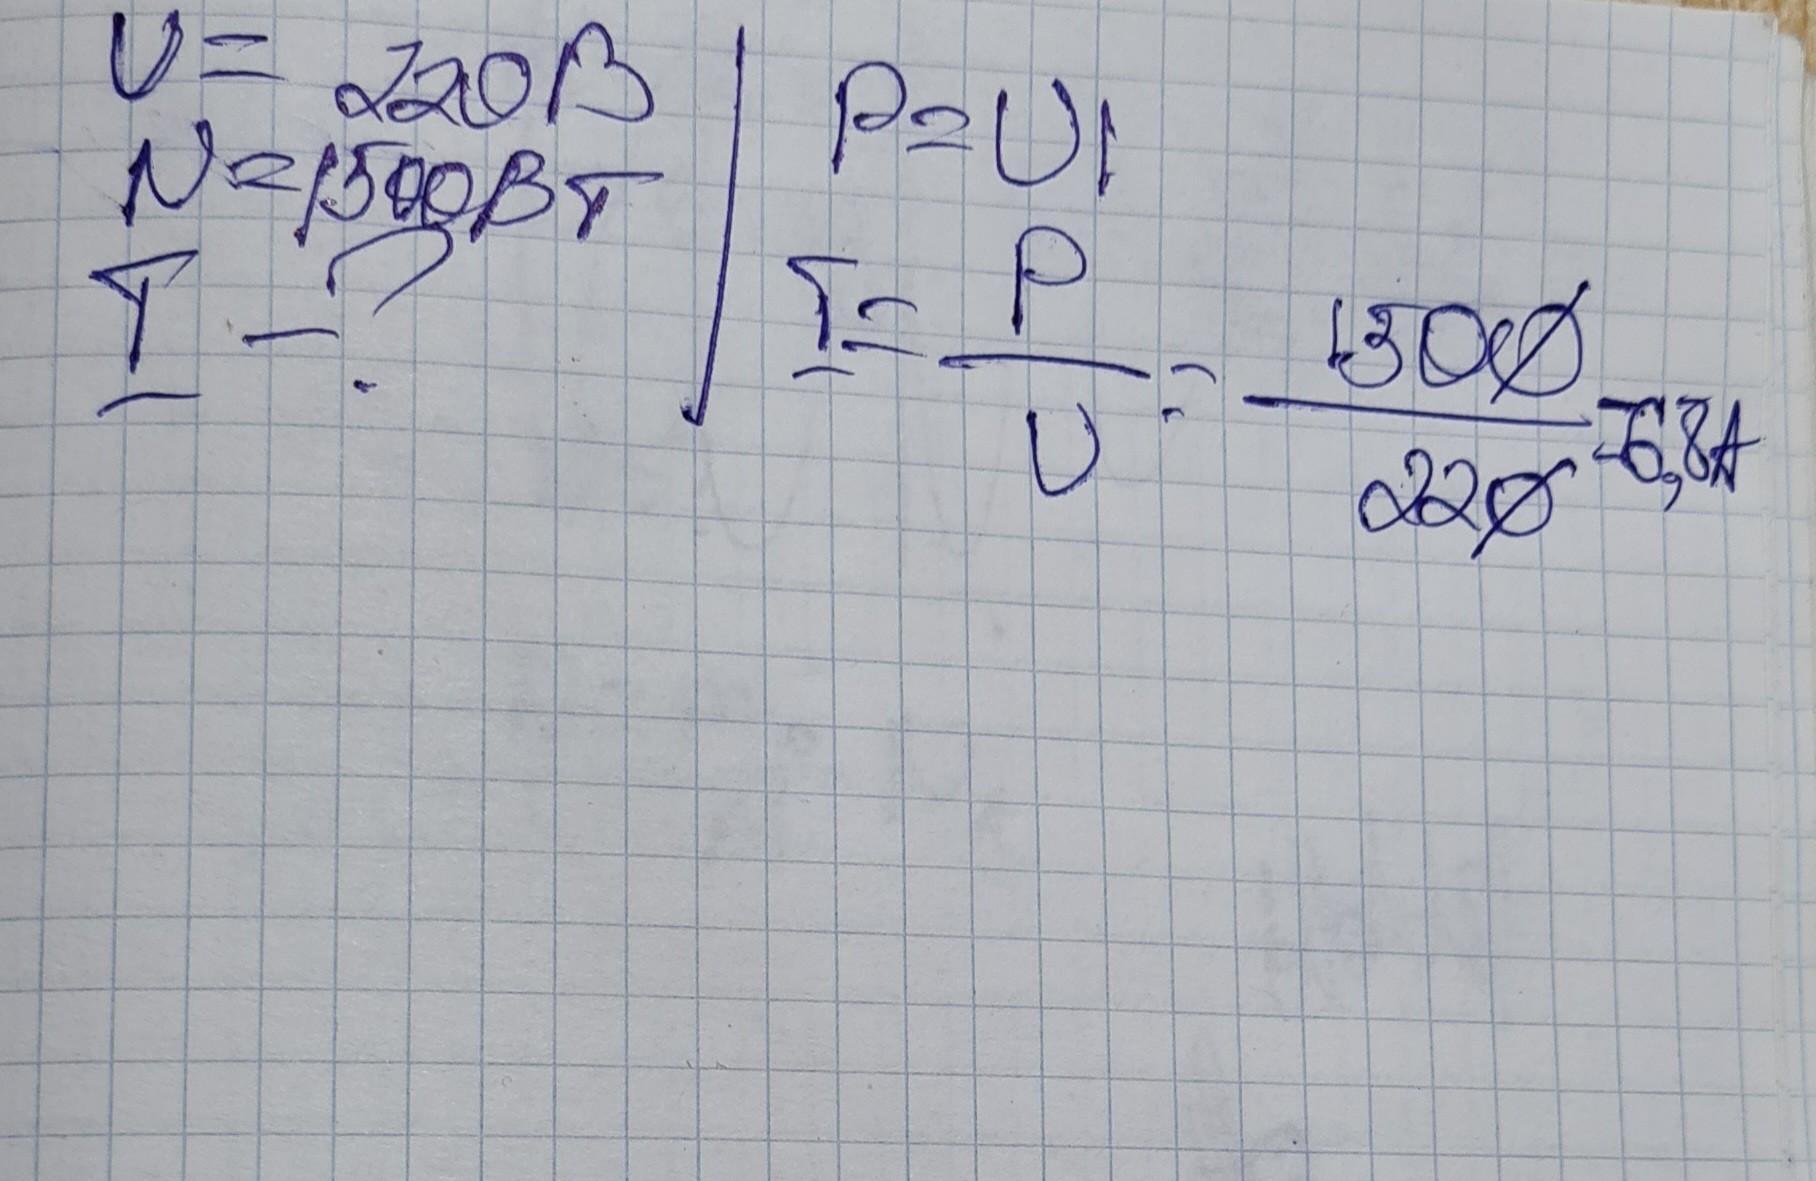 U = 220В
N = 1500Вт
I - ?
P = UI
I = P/U = 1500/220 = 6,8А